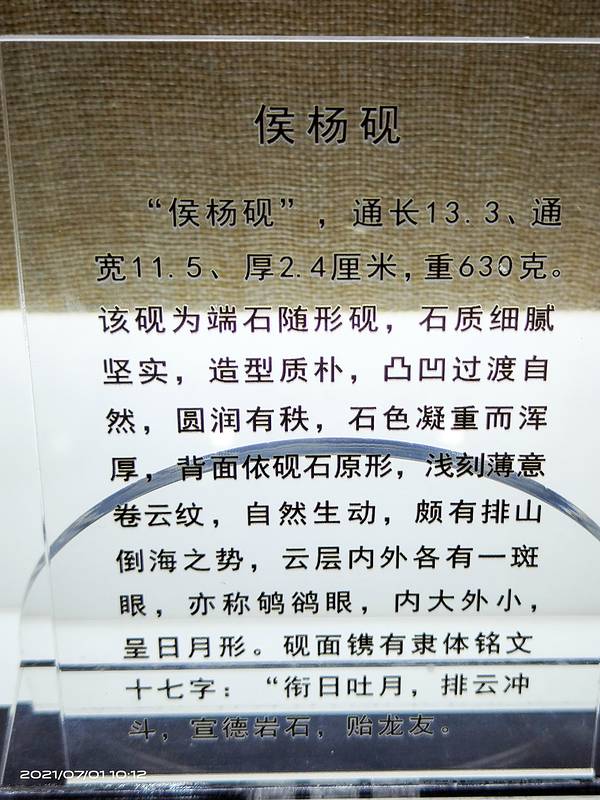 侯杨砚
“侯杨砚”，通长13.3、通
宽11.5、厚2.4厘米,重630克。
该砚为端石随形砚，石质细腻
坚实，造型质朴，凸凹过渡自
然，圆润有秩，石色凝重而浑
厚，背面依砚石原形，浅刻薄意
卷云纹，自然生动，颇有排山
倒海之势，云层内外各有一斑
眼，亦称鸲鹆眼，内大外小，
呈日月形。砚面镌有隶体铭文
十七字：“衔日吐月，排云冲
斗，宣德岩石，贻龙友。
2021/07/01 10:12